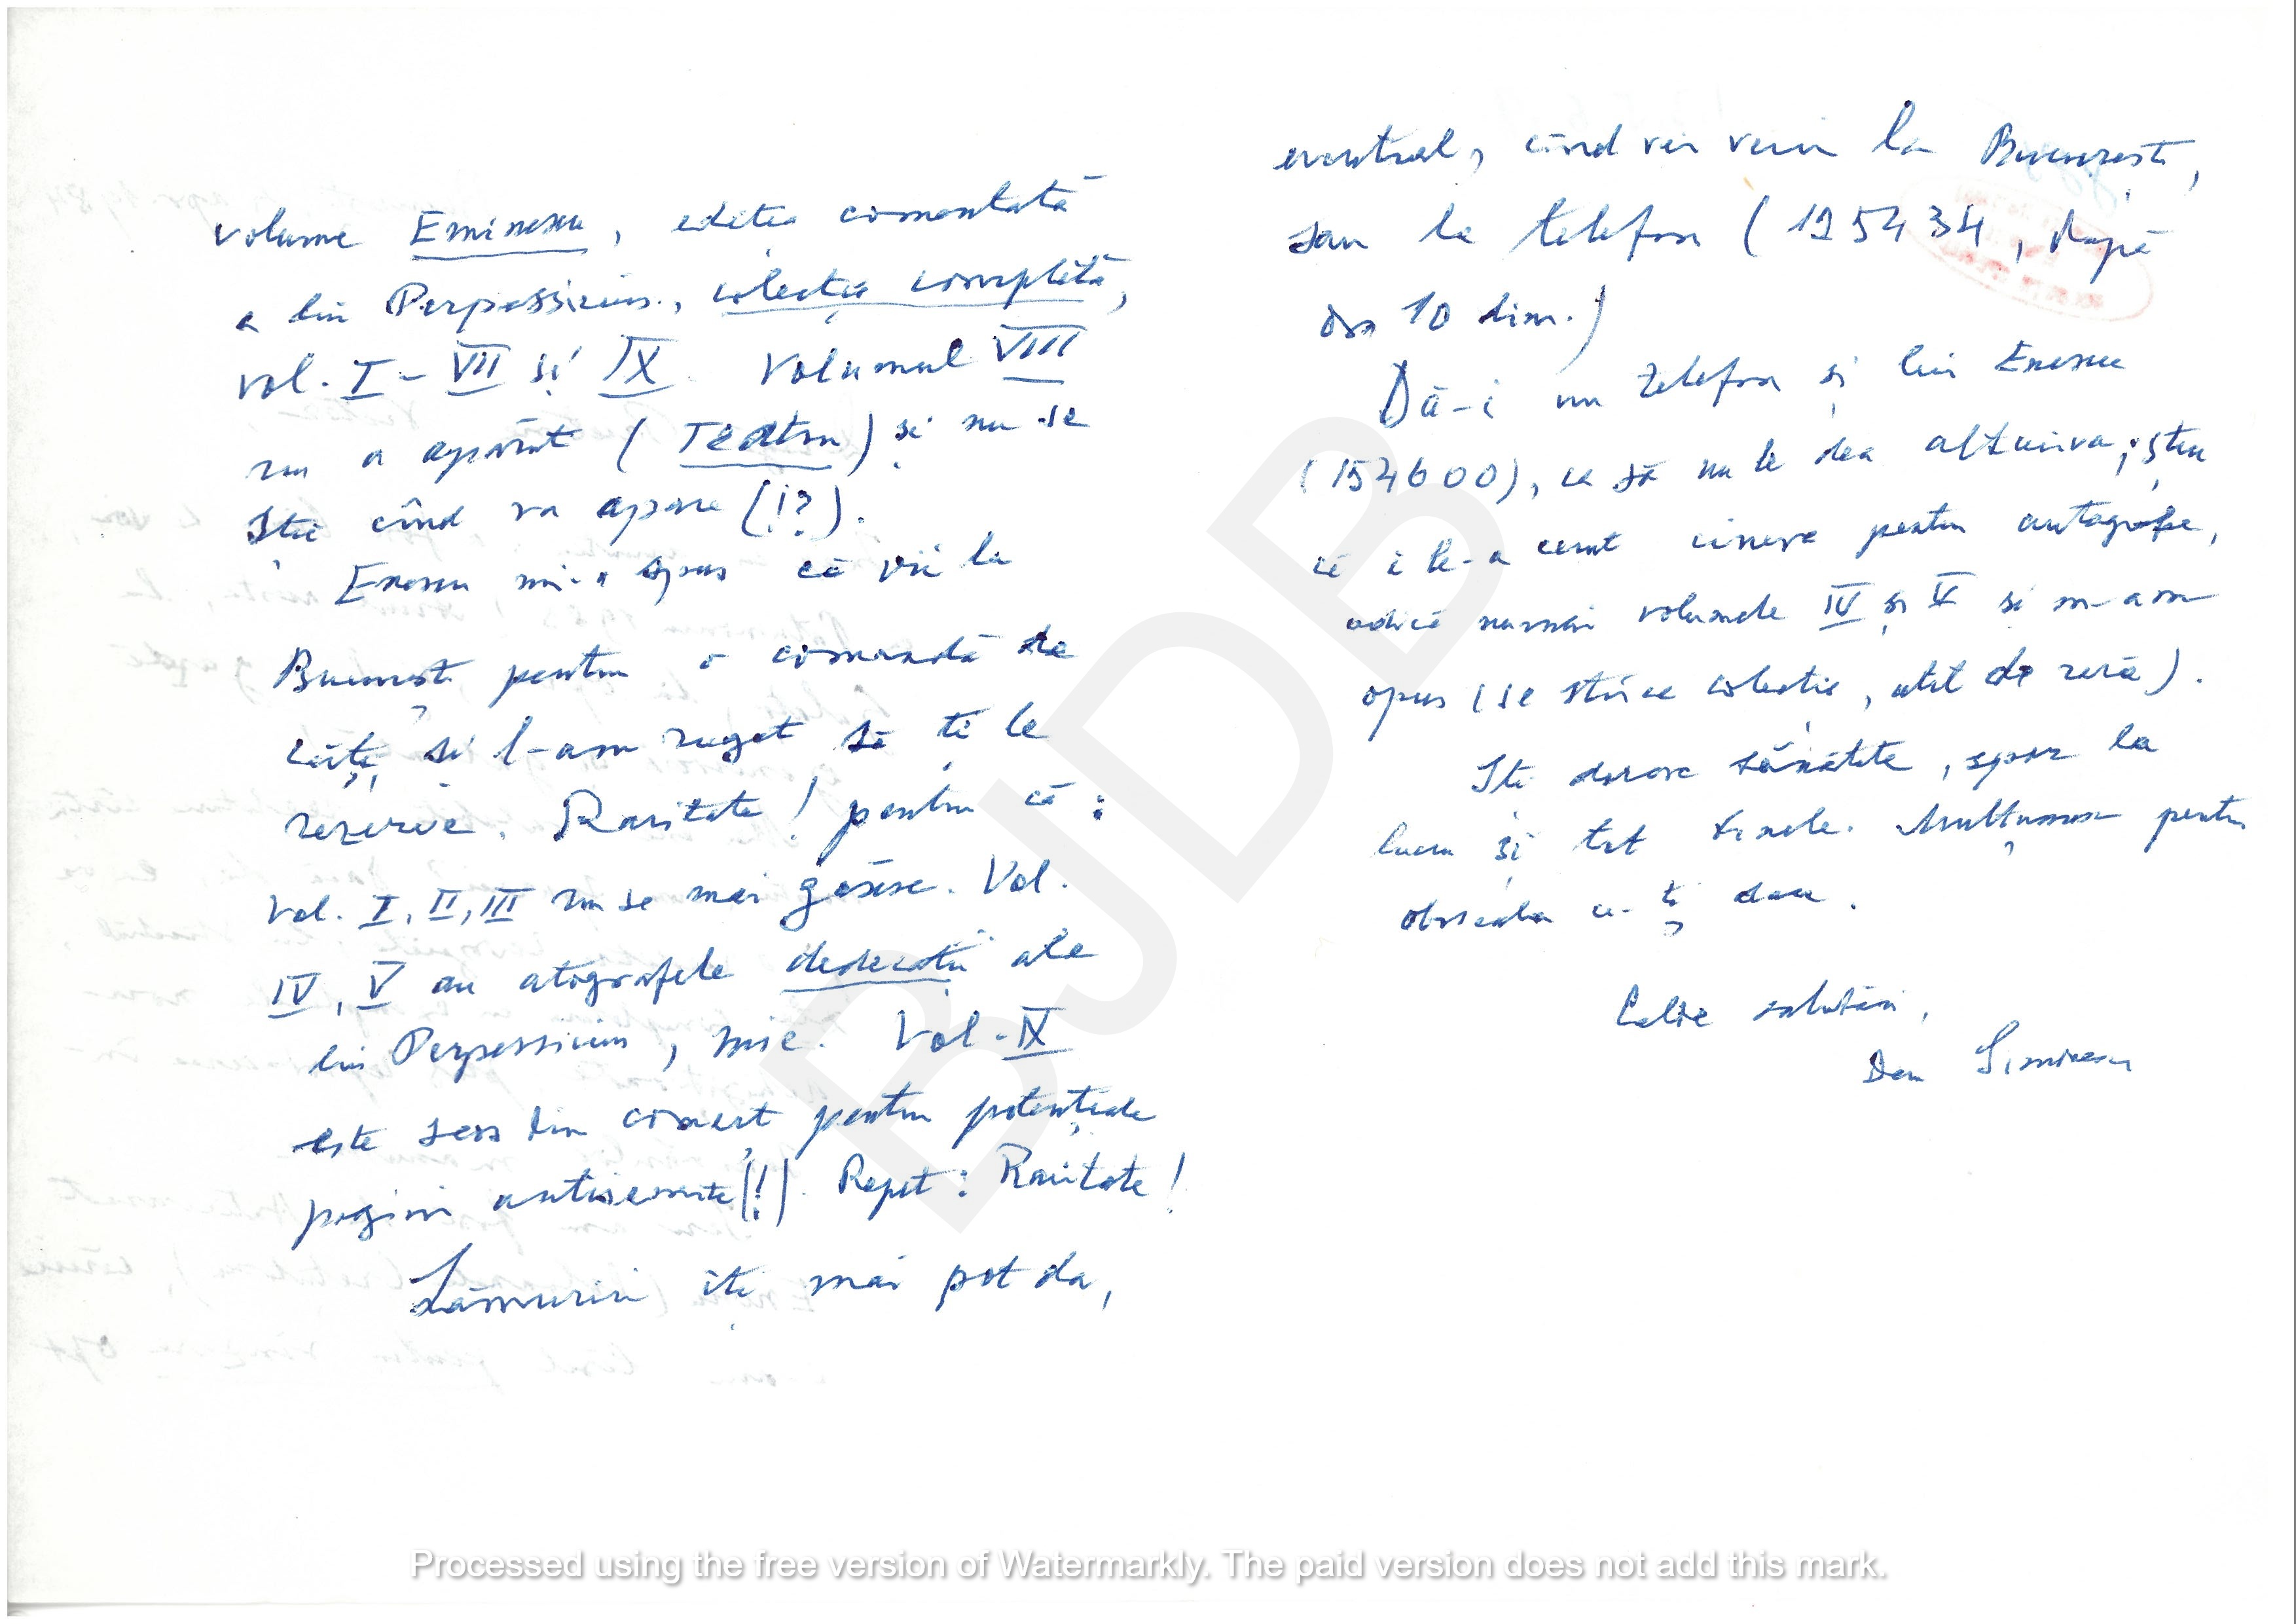 volume Eminescu, ediția comentată
a lui Perpessicius, colecția completă,
vol. I – VII și IX. Volumul VIII
nu a apărut (Teatru) și nu se
știe cînd va apare (!?).
Enescu mi-a spus că vii la
București pentru o comandă de
cărți, și l-am rugat să ți le
rezerve. Raritate! pentru că:
Vol. I, II, III nu se mai găsesc. Vol.
IV, V au atografele dedicații ale
lui Perpessicius, mie. Vol. IX
este scos din comerț pentru potențiale
pagini antisemite (!). Repet: Raritate!
Lămuriri îți mai pot da,
eventual, cînd vei veni la București,
sau la telefon (195434, după
ora 10 dim.)
Dă-i un telefon și lui Enescu
(154600), ca să nu le dea altcuiva; știu
că i le-a cerut cineva pentru autografe,
adică numai volumele IV și V și m-am
opus (se strică colecția, atît de rară).
Îți doresc sănătate, spor la
lucru și tot binele. Mulțumesc pentru
osteneala ce-ți dau.
Calde salutări,
Dan Simonescu
BJDB
Processed using the free version of Watermarkly. The paid version does not add this mark.